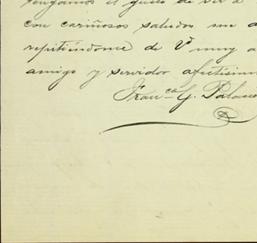 tengamos el gusto de ver á
con cariñosos saludos
repitiéndome de V. muy a
amigo y servidor afectísimo
Fran.ca G. Palau